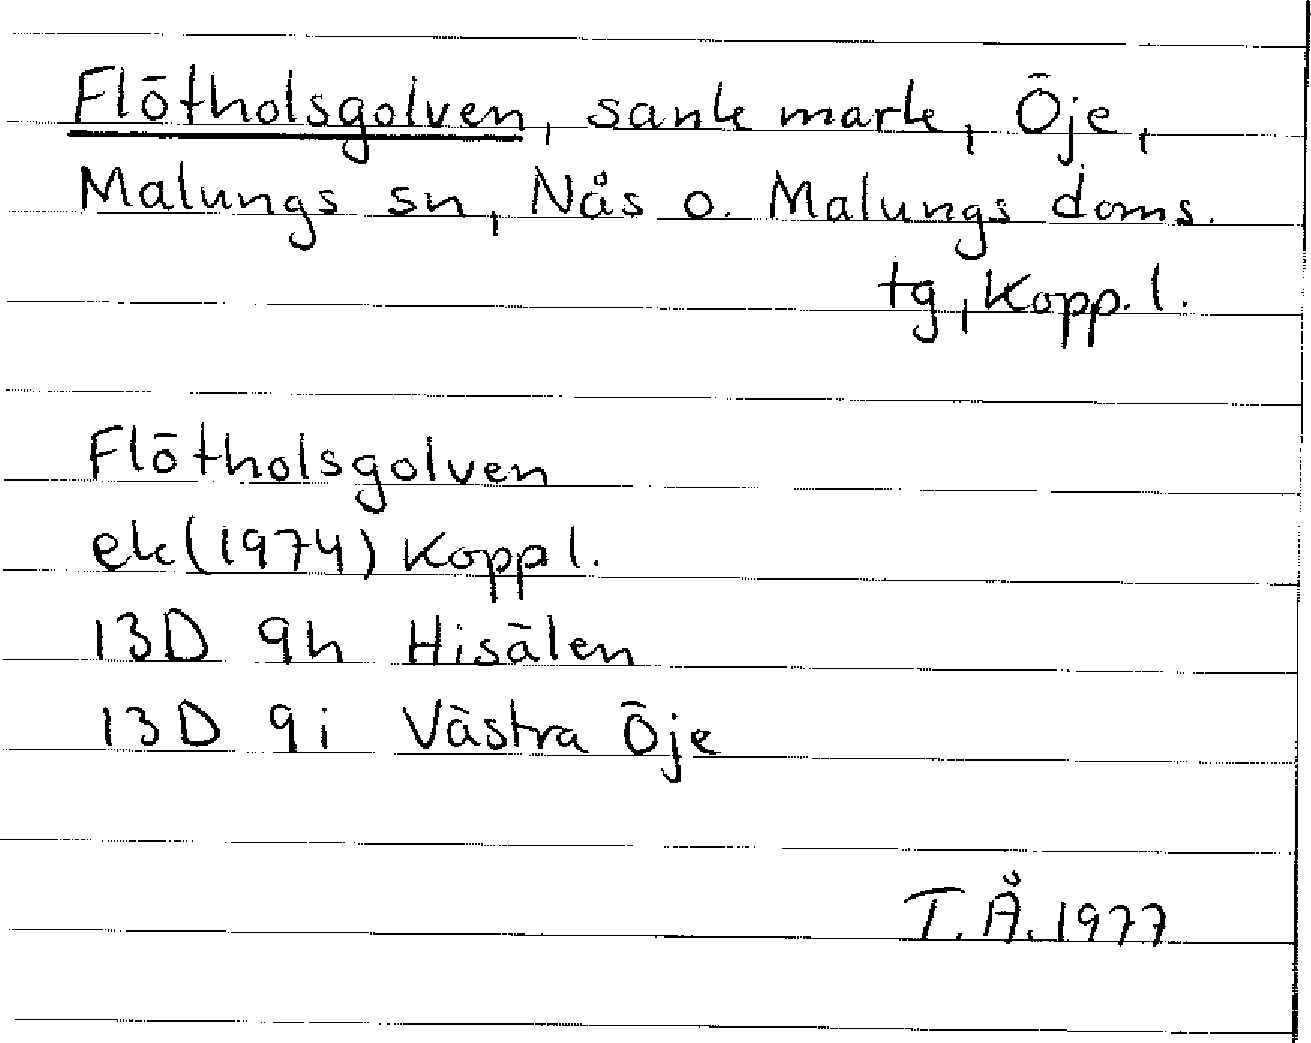 Flötholsgolven, sank mark, Öje,
Malungs sn, Nås o. Malungs doms.
tg, Kopp. l.
Flötholsgolven
ek (1974) Kopp l.
13D 9h Hisälen
13D 9i Västra Öje
T.Å. 1977